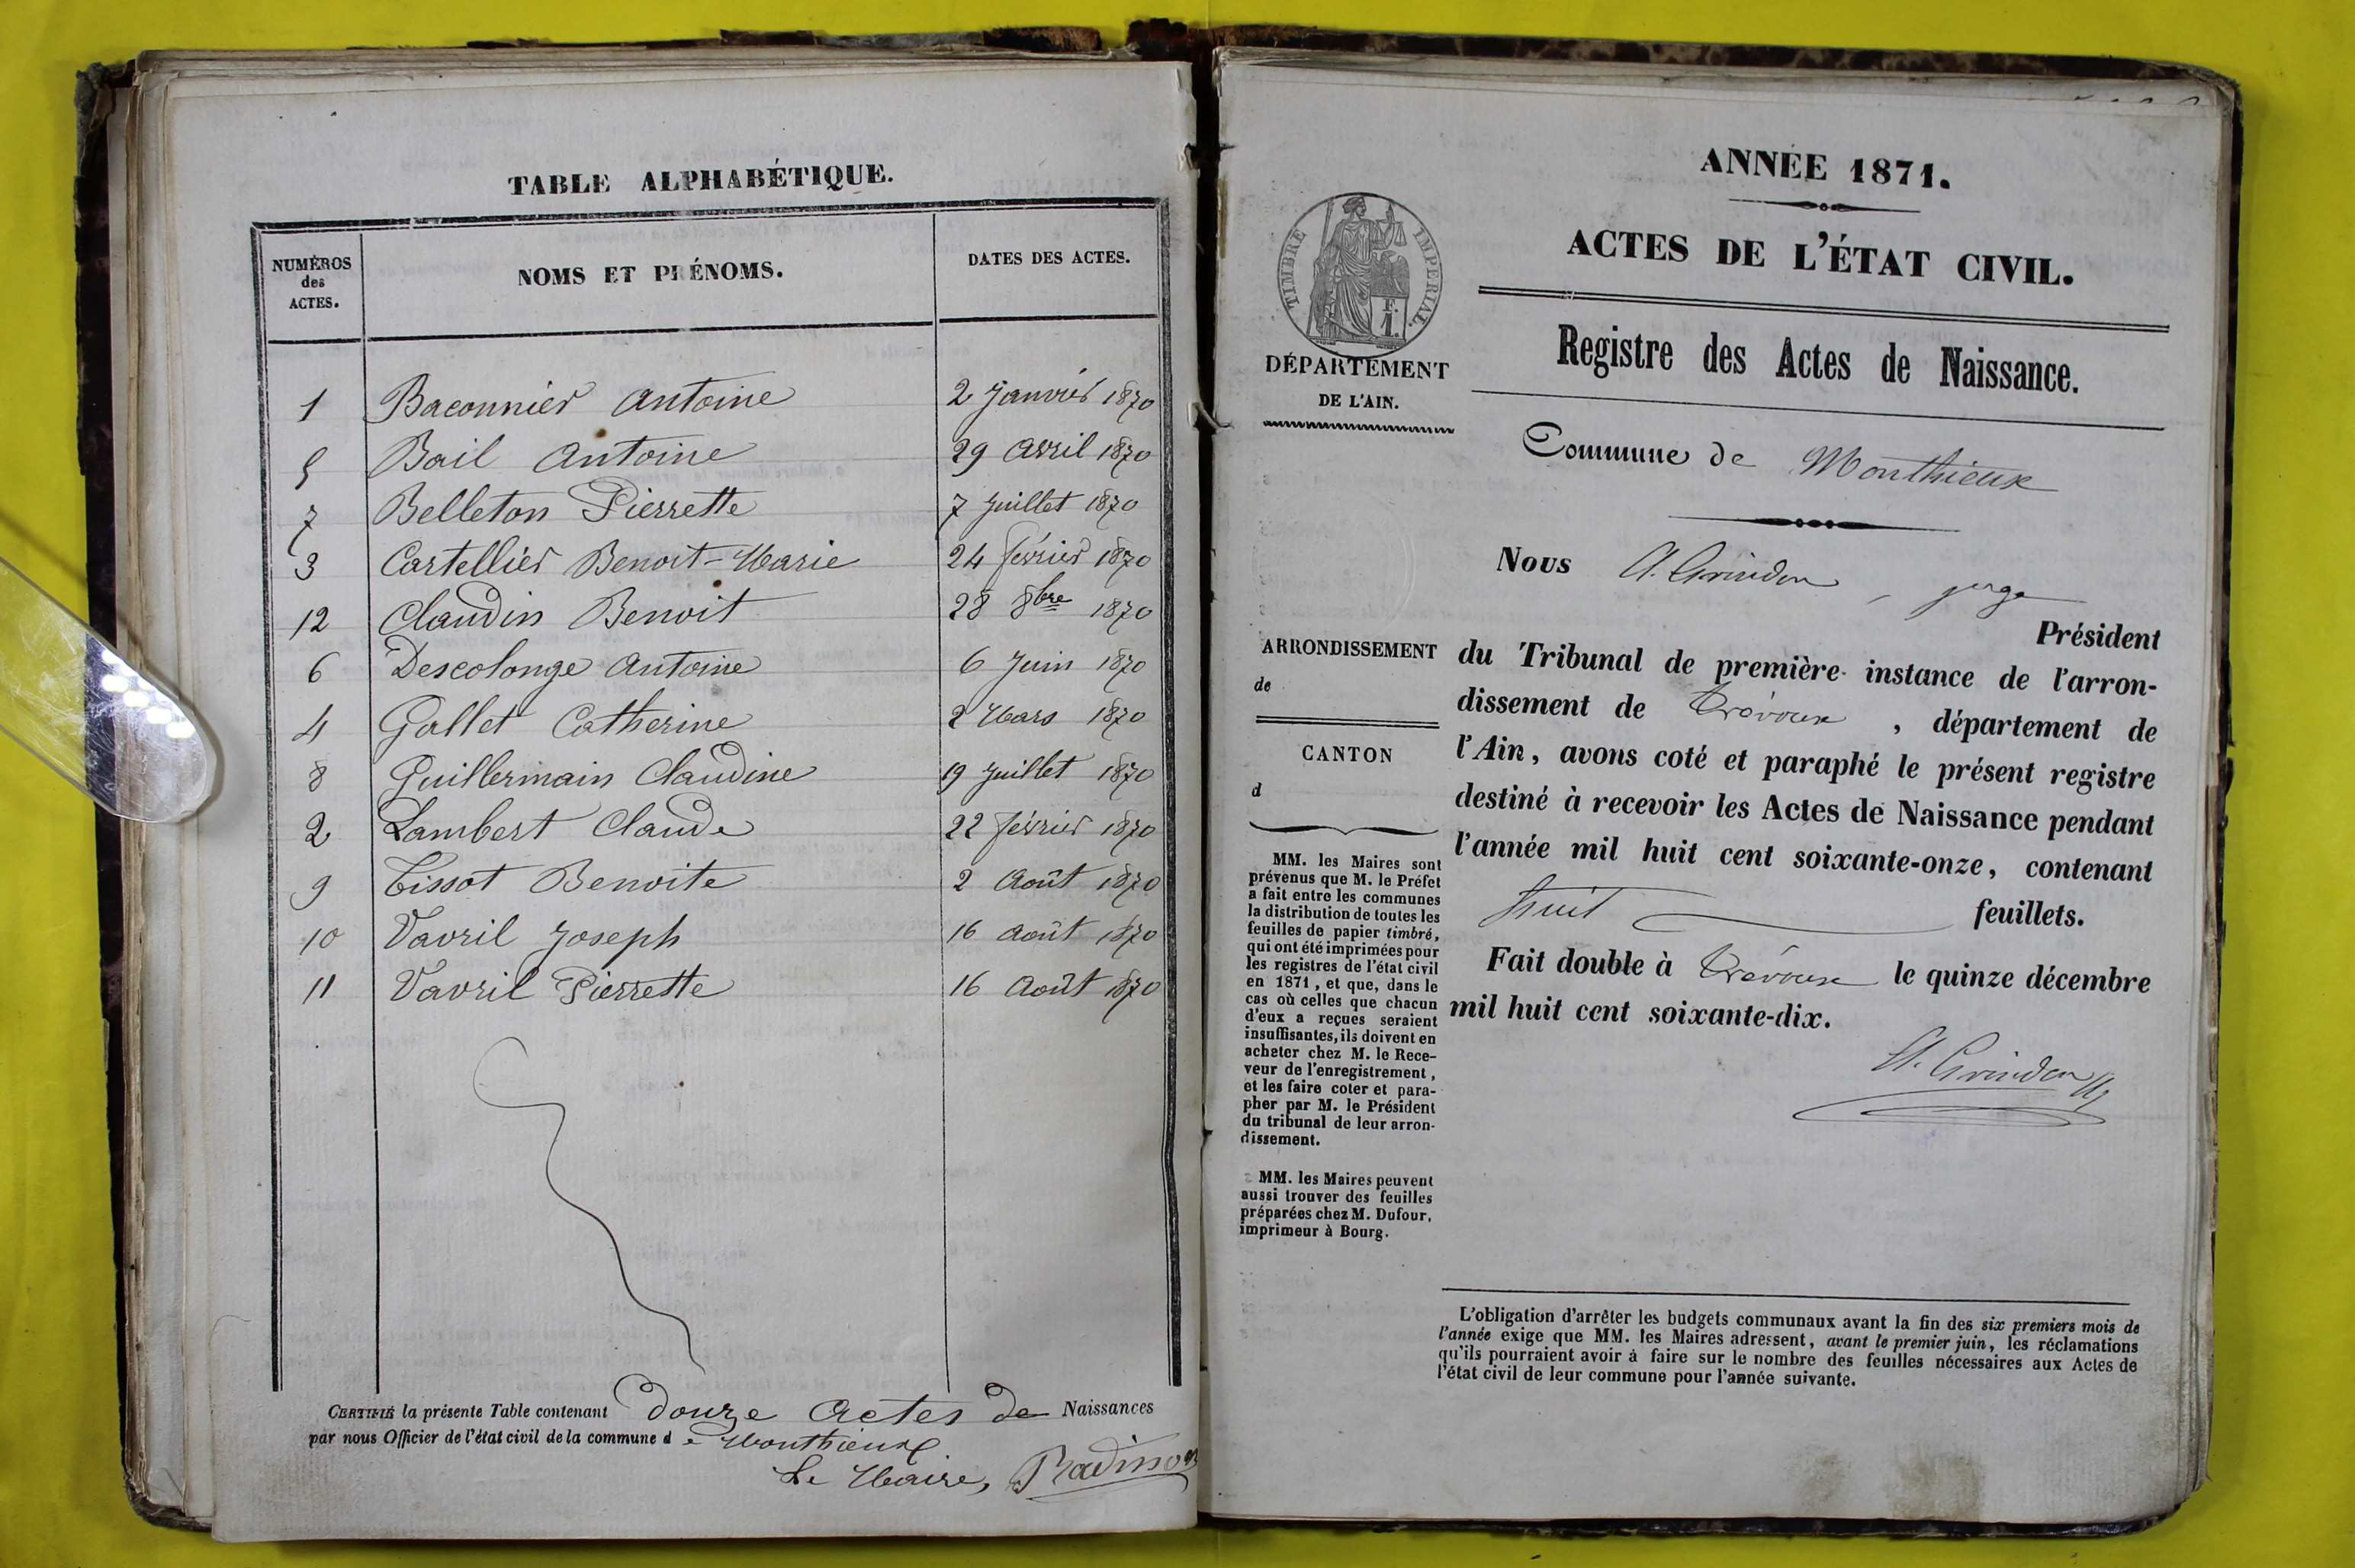 TABLE ALPHABÉTIQUE.
NUMÉROS
des
ACTES.
NOMS ET PRÉNOMS.
DATES DES ACTES.
1 Baconnier Antoine 2 Janvier 1870
5 Bail Antoine 29 Avril 1870
7 Belleton Pierrette 7 Juillet 1870
3 Cartellier Benoit-Marie 24 février 1870
12 Claudin Benoit 28 8bre 1870
6 Descolonge Antoine 6 Juin 1870
4 Gallet Catherine 2 Mars 1870
8 Guillermain Claudine 19 Juillet 1870
2 Lambert Claude 22 février 1870
9 Tissot Benoite 2 Août 1870
10 Vavril Joseph 16 Août 1870
11 Vavril Pierrette 16 Août 1870
CERTIFIÉ la présente Table contenant Douze Actes de Naissances
par nous Officier de l'état civil de la commune de Monthieux
Le Maire, Radisson
ANNÉE 1871.
ACTES DE L'ÉTAT CIVIL.
TIMBRE IMPERIAL.
F.
1.
DÉPARTEMENT
DE L'AIN.
Registre des Actes de Naissance.
Commune de Monthieux
Nous A. Grindon, juge
Président
du Tribunal de première instance de l'arron-
dissement de Trévoux, département de
l'Ain, avons coté et paraphé le présent registre
destiné à recevoir les Actes de Naissance pendant
l'année mil huit cent soixante-onze, contenant
huit feuillets.
Fait double à Trévoux le quinze décembre
mil huit cent soixante-dix.
A. Grindon
ARRONDISSEMENT
de
CANTON
d
MM. les Maires sont
prévenus que M. le Préfet
a fait entre les communes
la distribution de toutes les
feuilles de papier timbré,
qui ont été imprimées pour
les registres de l'état civil
en 1871, et que, dans le
cas où celles que chacun
d'eux a reçues seraient
insuffisantes, ils doivent en
acheter chez M. le Rece-
veur de l'enregistrement,
et les faire coter et para-
pher par M. le Président
du tribunal de leur arron-
dissement.
MM. les Maires peuvent
aussi trouver des feuilles
préparées chez M. Dufour,
imprimeur à Bourg.
L'obligation d'arrêter les budgets communaux avant la fin des six premiers mois de
l'année exige que MM. les Maires adressent, avant le premier juin, les réclamations
qu'ils pourraient avoir à faire sur le nombre des feuilles nécessaires aux Actes de
l'état civil de leur commune pour l'année suivante.